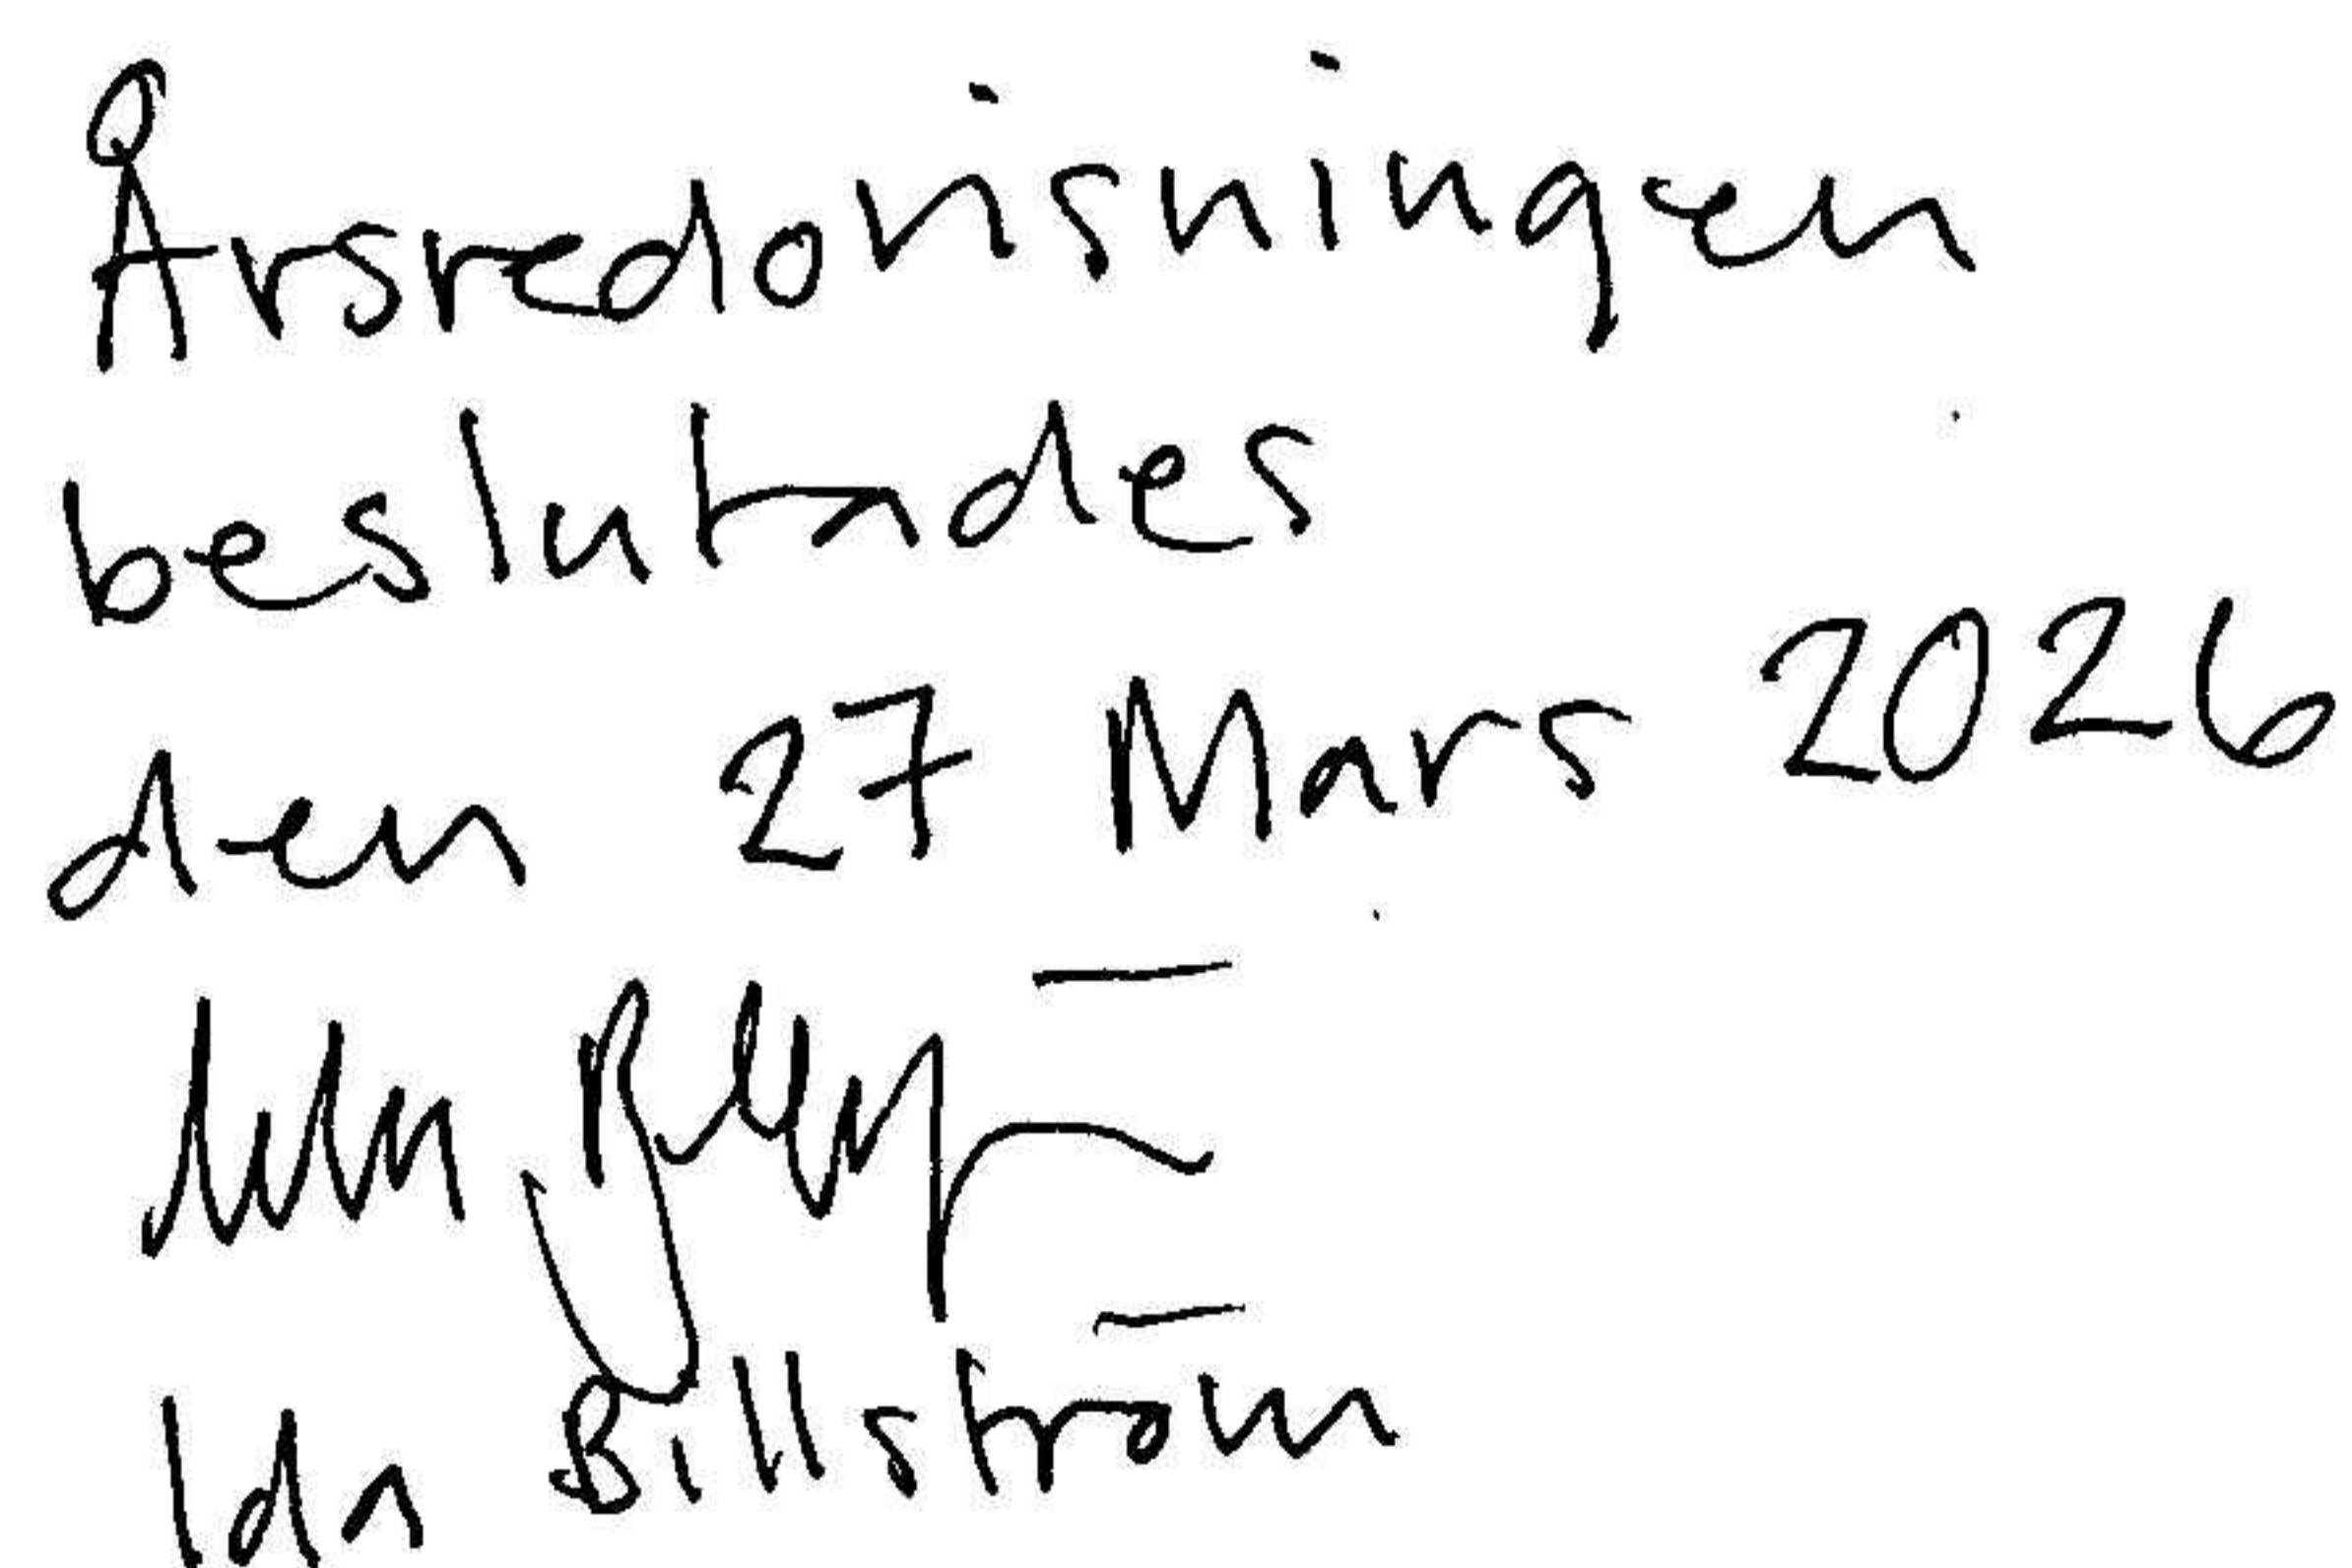 Årsredovisningen
beslutades
den 27 Mars 2026
Ida Billström